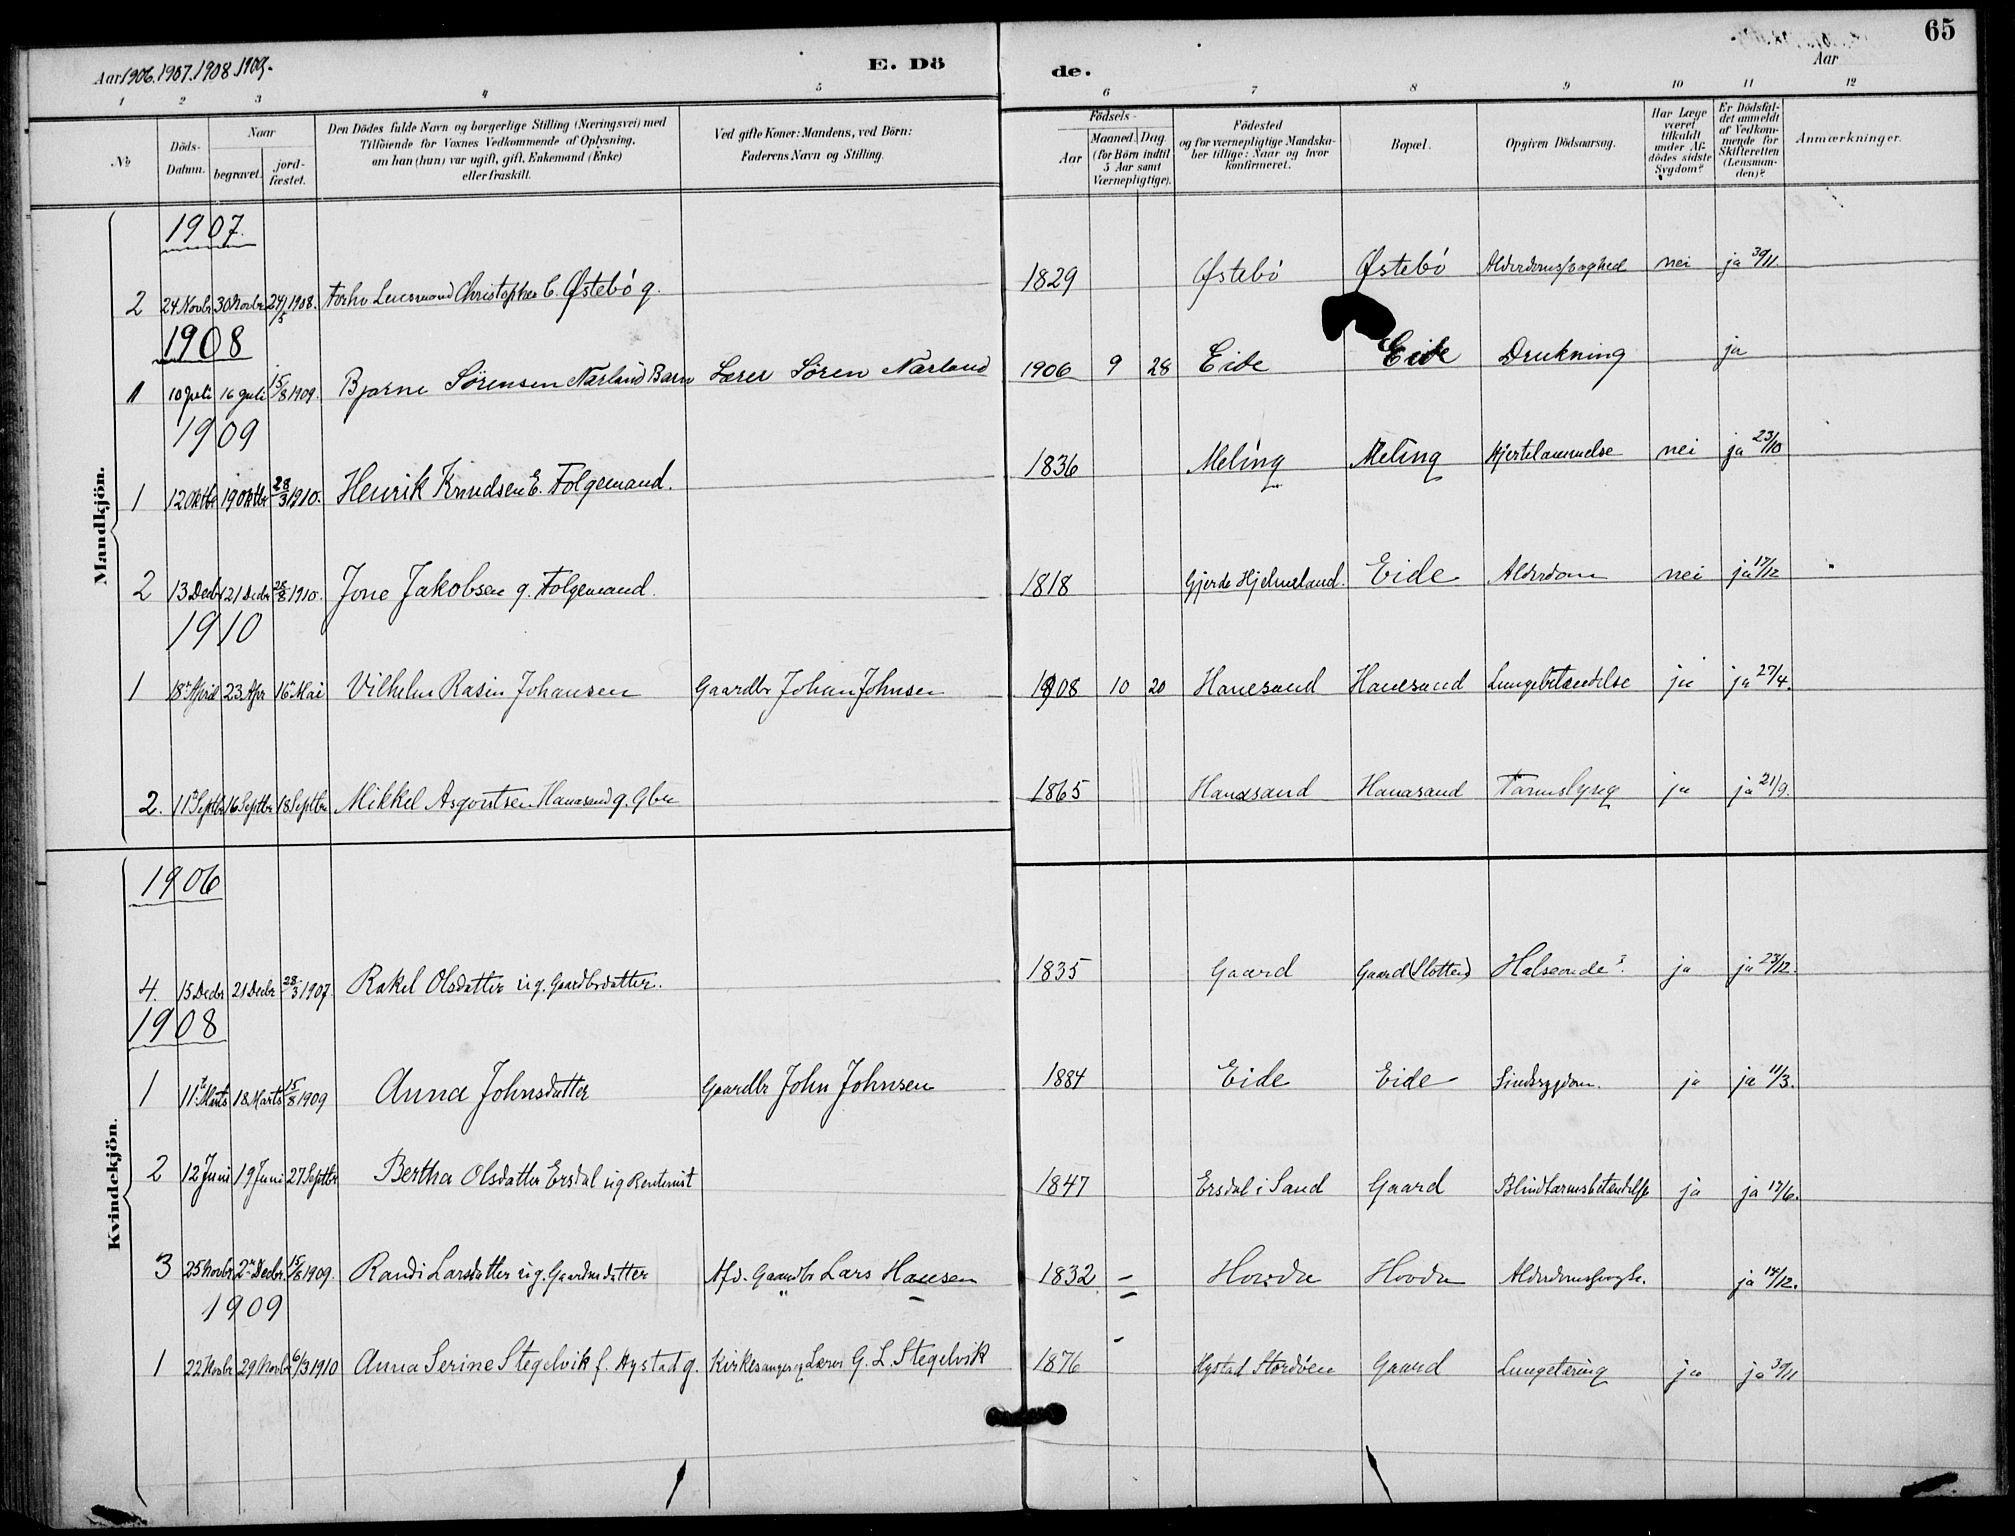 Aar 1906. 1907. 1908. 1909.
E. Dö de.
Aar
65
1 2 3 4 5 6 7 8 9 10 11 12
No
Döds-Datum.
Naar begravet. jord-fæstet.
Den Dödes fulde Navn og borgerlige Stilling (Næringsvei) med Tilföiende for Voxnes Vedkommende af Oplysning, om han (hun) var ugift, gift, Enkemand (Enke) eller fraskilt.
Ved gifte Koner: Mandens, ved Börn: Faderens Navn og Stilling.
Födsels-
Aar
Maaned. Dag. (for Börn indtil 5 Aar samt Værnepligtige).
Födested og for værnepligtige Mandskaber tillige: Naar og hvor konfirmeret.
Bopæl.
Opgiven Dödsaarsag.
Har Læge været tilkaldt under Afdödes sidste Sygdom?
Er Dödsfaldet anmeldt af Vedkommende for Skifteretten (Lensmanden)?
Anmærkninger.
Mandkjön.
1907.
2 24 Novbr 30 Novbr 24/5 1908. Forhv Lensmand Christopher C. Østebö g. 1829 Østebö Østebö Alderdomssvaghed nei ja 30/11
1908
1 10 Juli 16 Juli 15/8 1909. Bjarne Sörensen Nærland Barn Lærer Sören Nærland 1906 9 28 Eide Eide Drukning ja
1909
1 12 Oktbr 19 Oktbr 28/3 1910. Henrik Knudsen E. Folgemand. 1836 Meling Meling Hjertelammelse nei ja 23/10
2 13 Decbr 21 Decbr 28/8 1910. Jone Jakobsen g. Folgemand. 1818 Gjerde Hjelmeland. Eide Alderdom nei ja 17/12
1910
1 18 April 23 Apr 16 Mai Vilhelm Rasin Johansen Gaardbr Johan Johnsen 1908 10 20 Hanesand Hanesand Lungebetændelse ja ja 27/4.
2. 11 Septbr 16 Septbr 18 Septbr Mikkel Asgoutsen Hanasand g. Gbr 1865 Hanasand Hanasand Tarmslyng ja ja 21/9.
Kvindekjön.
1906
4. 15 Decbr 21 Decbr 28/3 1907. Rakel Olsdatter ug. Gaardbrdatter. 1835 Gaard Gaard (Slotten) Halseonde? ja ja 28/12.
1908
1 11te Marts 18 Marts 15/8 1909 Anna Johnsdatter Gaardbr John Johnsen 1884 Eide Eide Sindssygdom. ja ja 11/3.
2 12 Juni 19 Juni 27 Septbr Bertha Olsdatter Ersdal ug Rentenist 1847 Ersdal i Sand Gaard Blindtarmsbetændelse ja ja 17/6.
3 25 Novbr 2 Decbr. 15/8 1909. Randi Larsdatter ug. Gaardmdatter Afd. Gaardbr Lars Hansen 1832 Hovda Hovda ja 14/12.
1909
1 22 Novbr 29 Novbr 6/3 1910 Anna Serine Stegelvik f. Hystad g. Kirkesanger og Lærer G. L. Stegelvik 1876 Hystad Stordöen Gaard Lungetæring ja ja 30/11